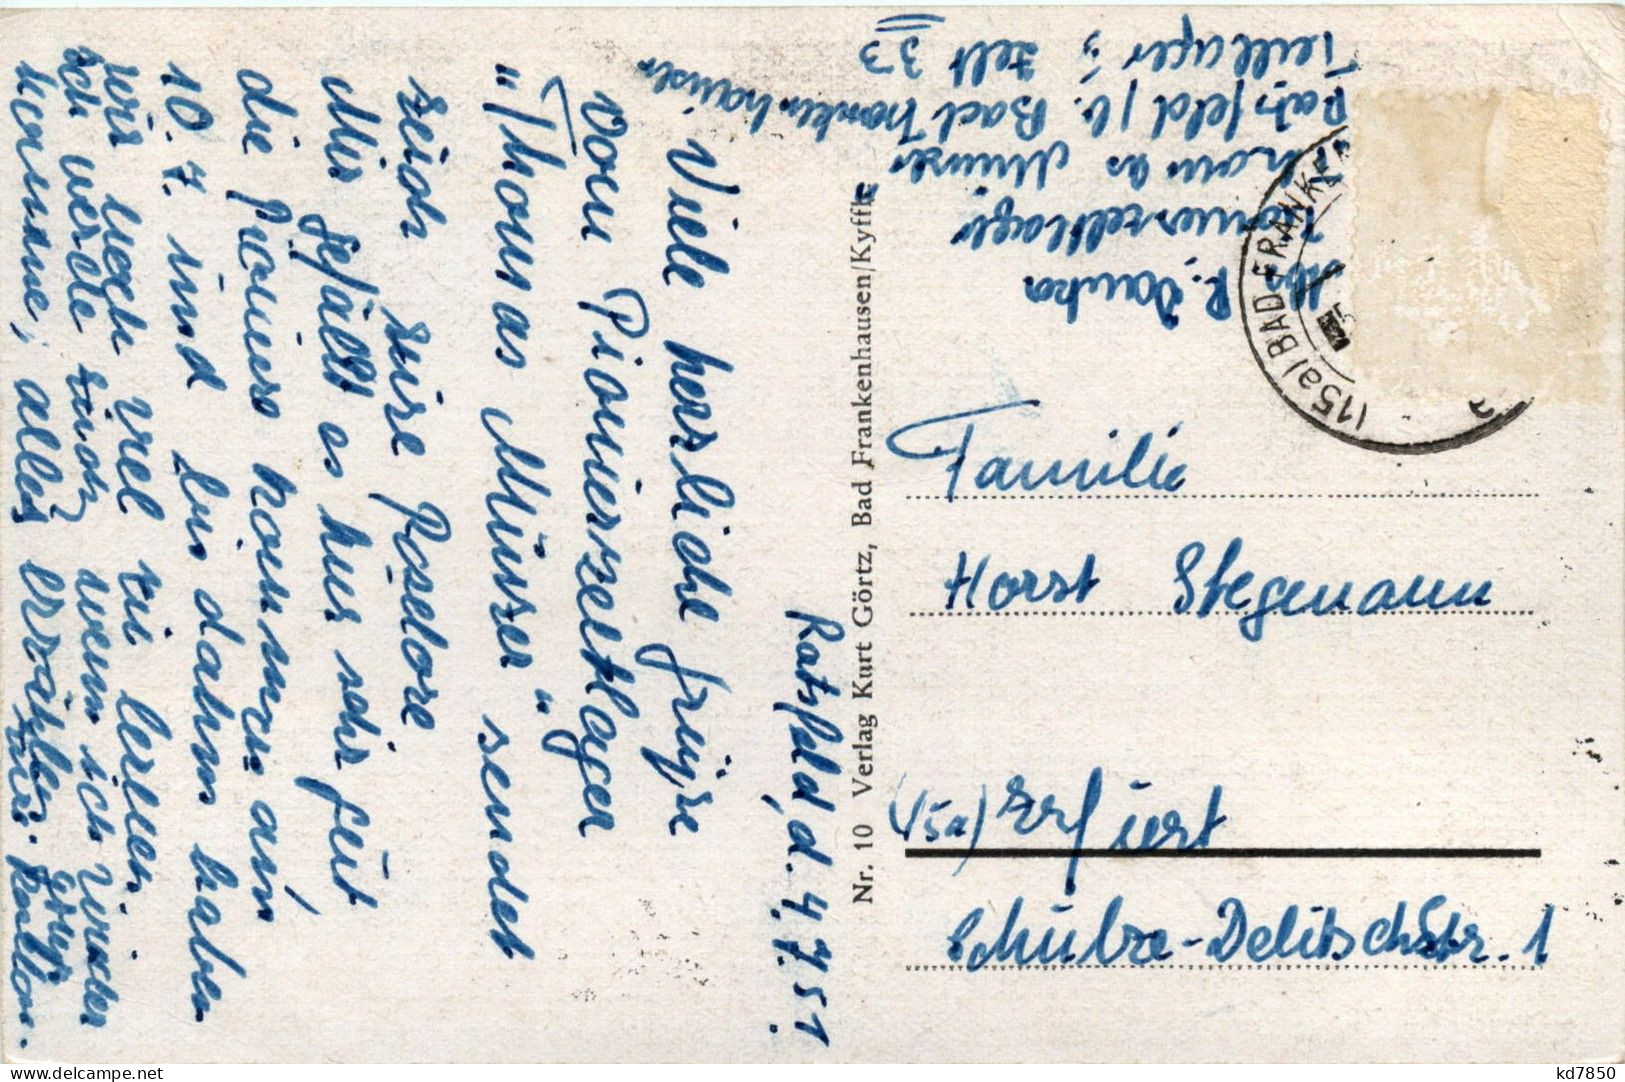 Ratsfeld, d. 4.7.51
Viele herzliche Grüße
vom Pionierzeltlager
"Thomas Münzer" sendet
Euch Eure Roselore
Mir gefällt es hier sehr gut
die Pioniere kommen am
10.7. und bis dahin haben
wir noch viel zu lernen.
Ich werde Euch, wenn ich wieder
komme, alles erzählen.
R.
Pionierzeltlager
Thomas Münzer
Ratsfeld / b. Bad Frankenhausen
Teillager 3; Zelt 33
Nr. 10 Verlag Kurt Görtz, Bad Frankenhausen/Kyffh.
(15a) BAD FRANKE
Familie
Horst Stegmann
(15a) Erfurt
Schulze-Delitschstr. 1
kd7850